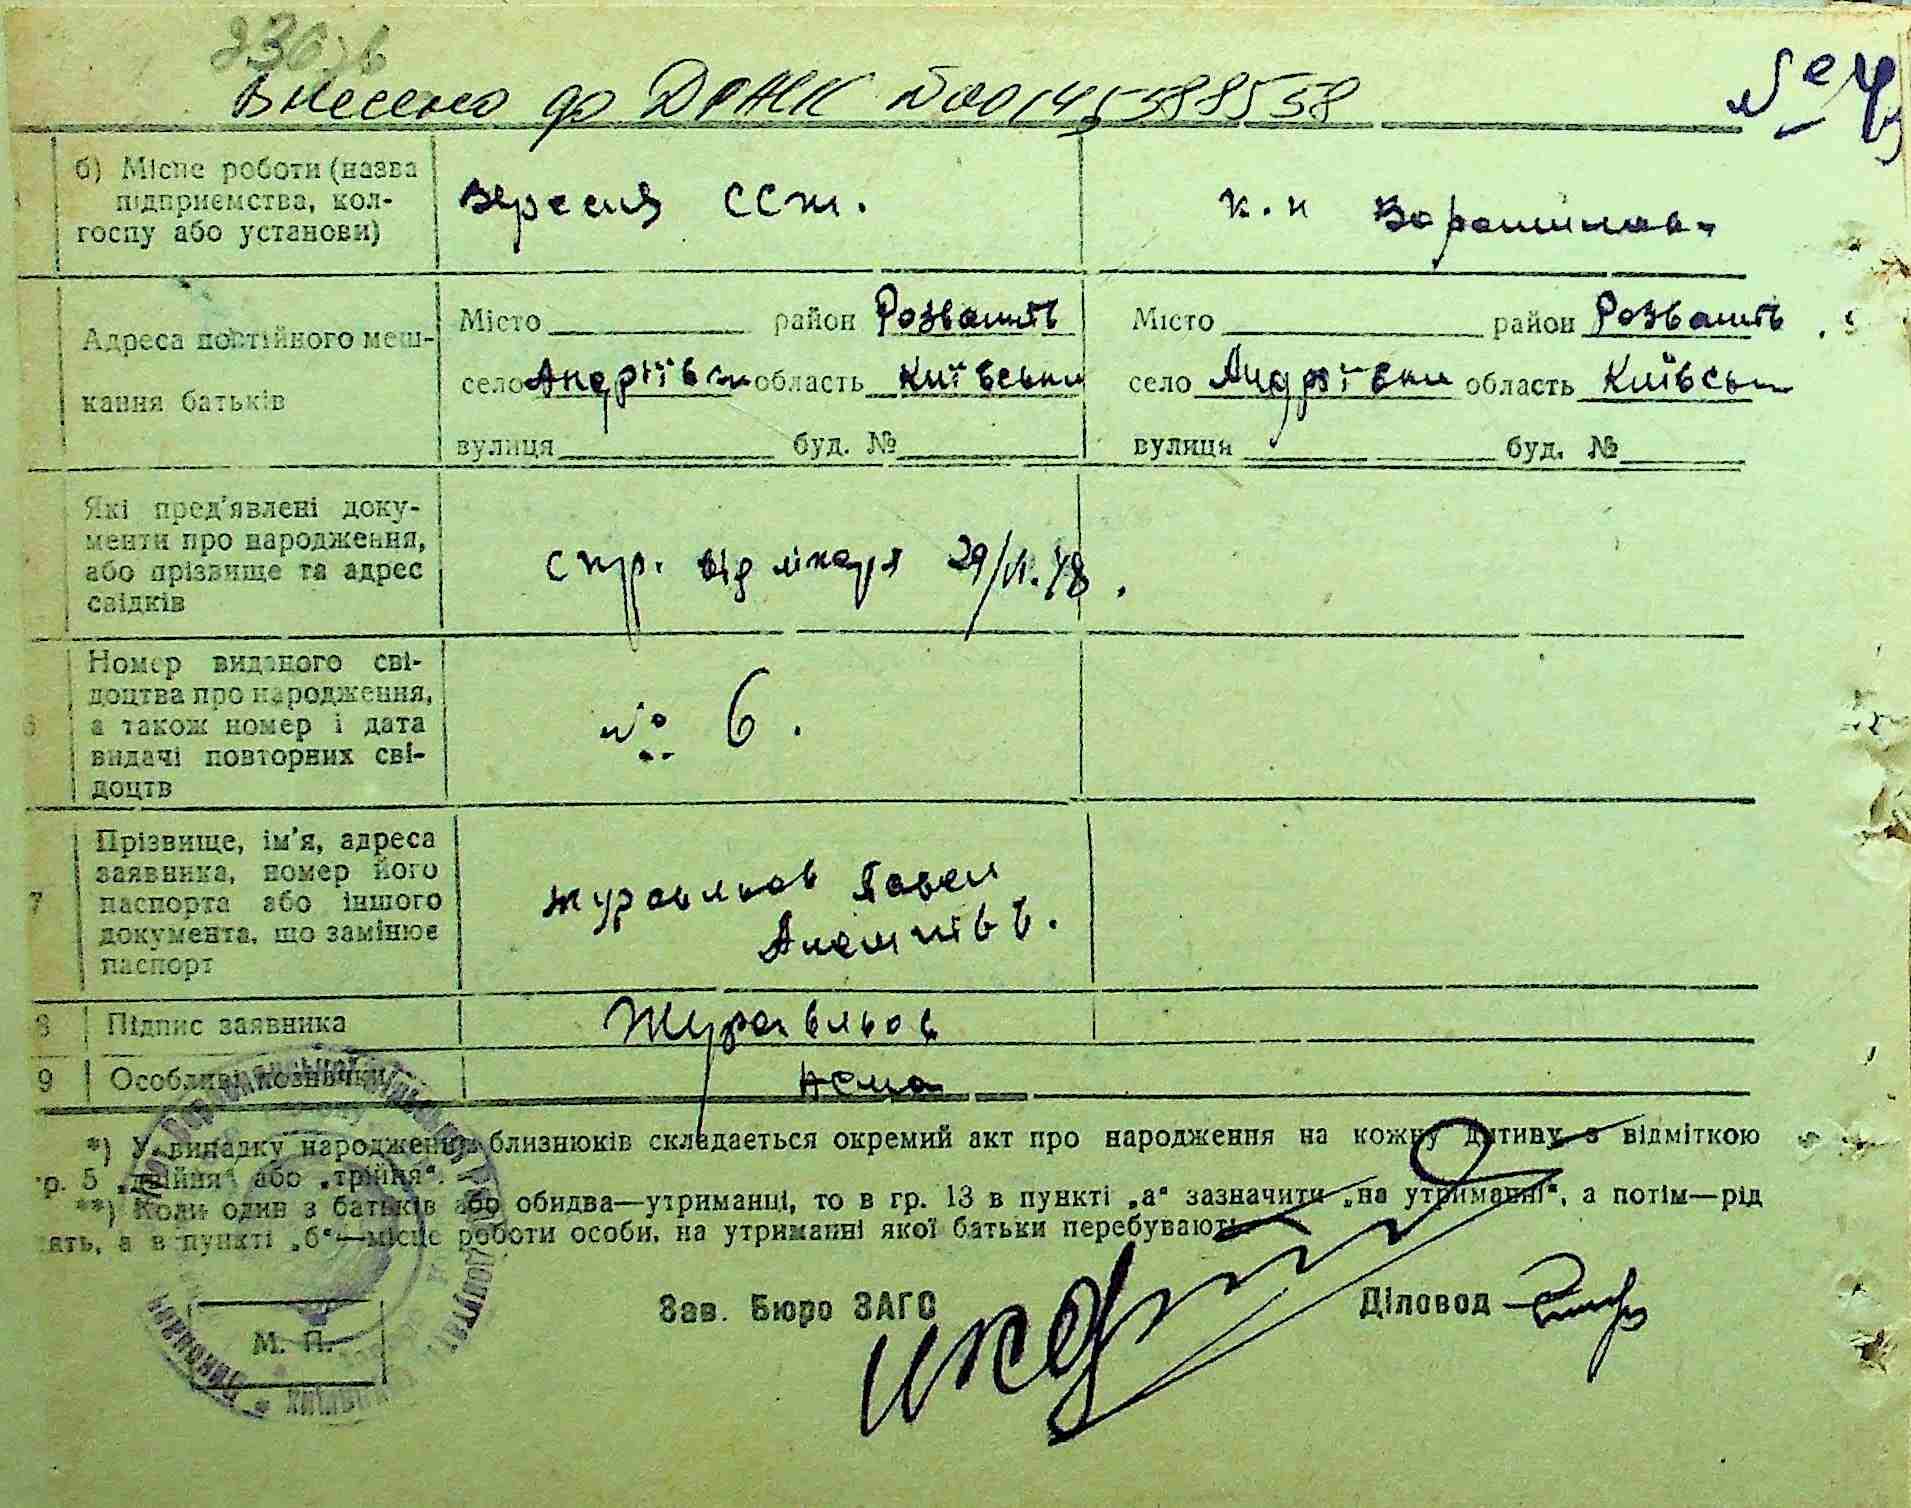 Внесено до ДРАЦС №00145588558
№ 4
б) Місце роботи (назва
підприємства, кол-
госпу або установи)
ССТ.
к-п Ворошилова
Адреса постійного меш-
кання батьків
Місто район Розважів Місто район Розважів
село Андріївка область Київська село Андріївка область Київськ
вулиця буд. № вулиця буд. №
Які пред'явлені доку-
менти про народження,
або прізвище та адрес
свідків
спр. від лікаря 29/VI.48.
Номер виданого сві-
доцтва про народження,
а також номер і дата
видачі повторних сві-
доцтв
№ 6.
7
Прізвище, ім'я, адреса
заявника, номер його
паспорта або іншого
документа, що замінює
паспорт
Журавльов Павел
8 Підпис заявника Журавльов
9 Особливі позначки нема
*) У випадку народження близнюків складається окремий акт про народження на кожну дитину з відміткою
гр. 5 „двійня“ або „трійня“.
**) Коли один з батьків або обидва—утриманці, то в гр. 13 в пункті „а“ зазначити „на утриманні“, а потім—рід
занять, а в пункті „б“—місце роботи особи, на утриманні якої батьки перебувають.
Зав. Бюро ЗАГС Діловод
М. П.